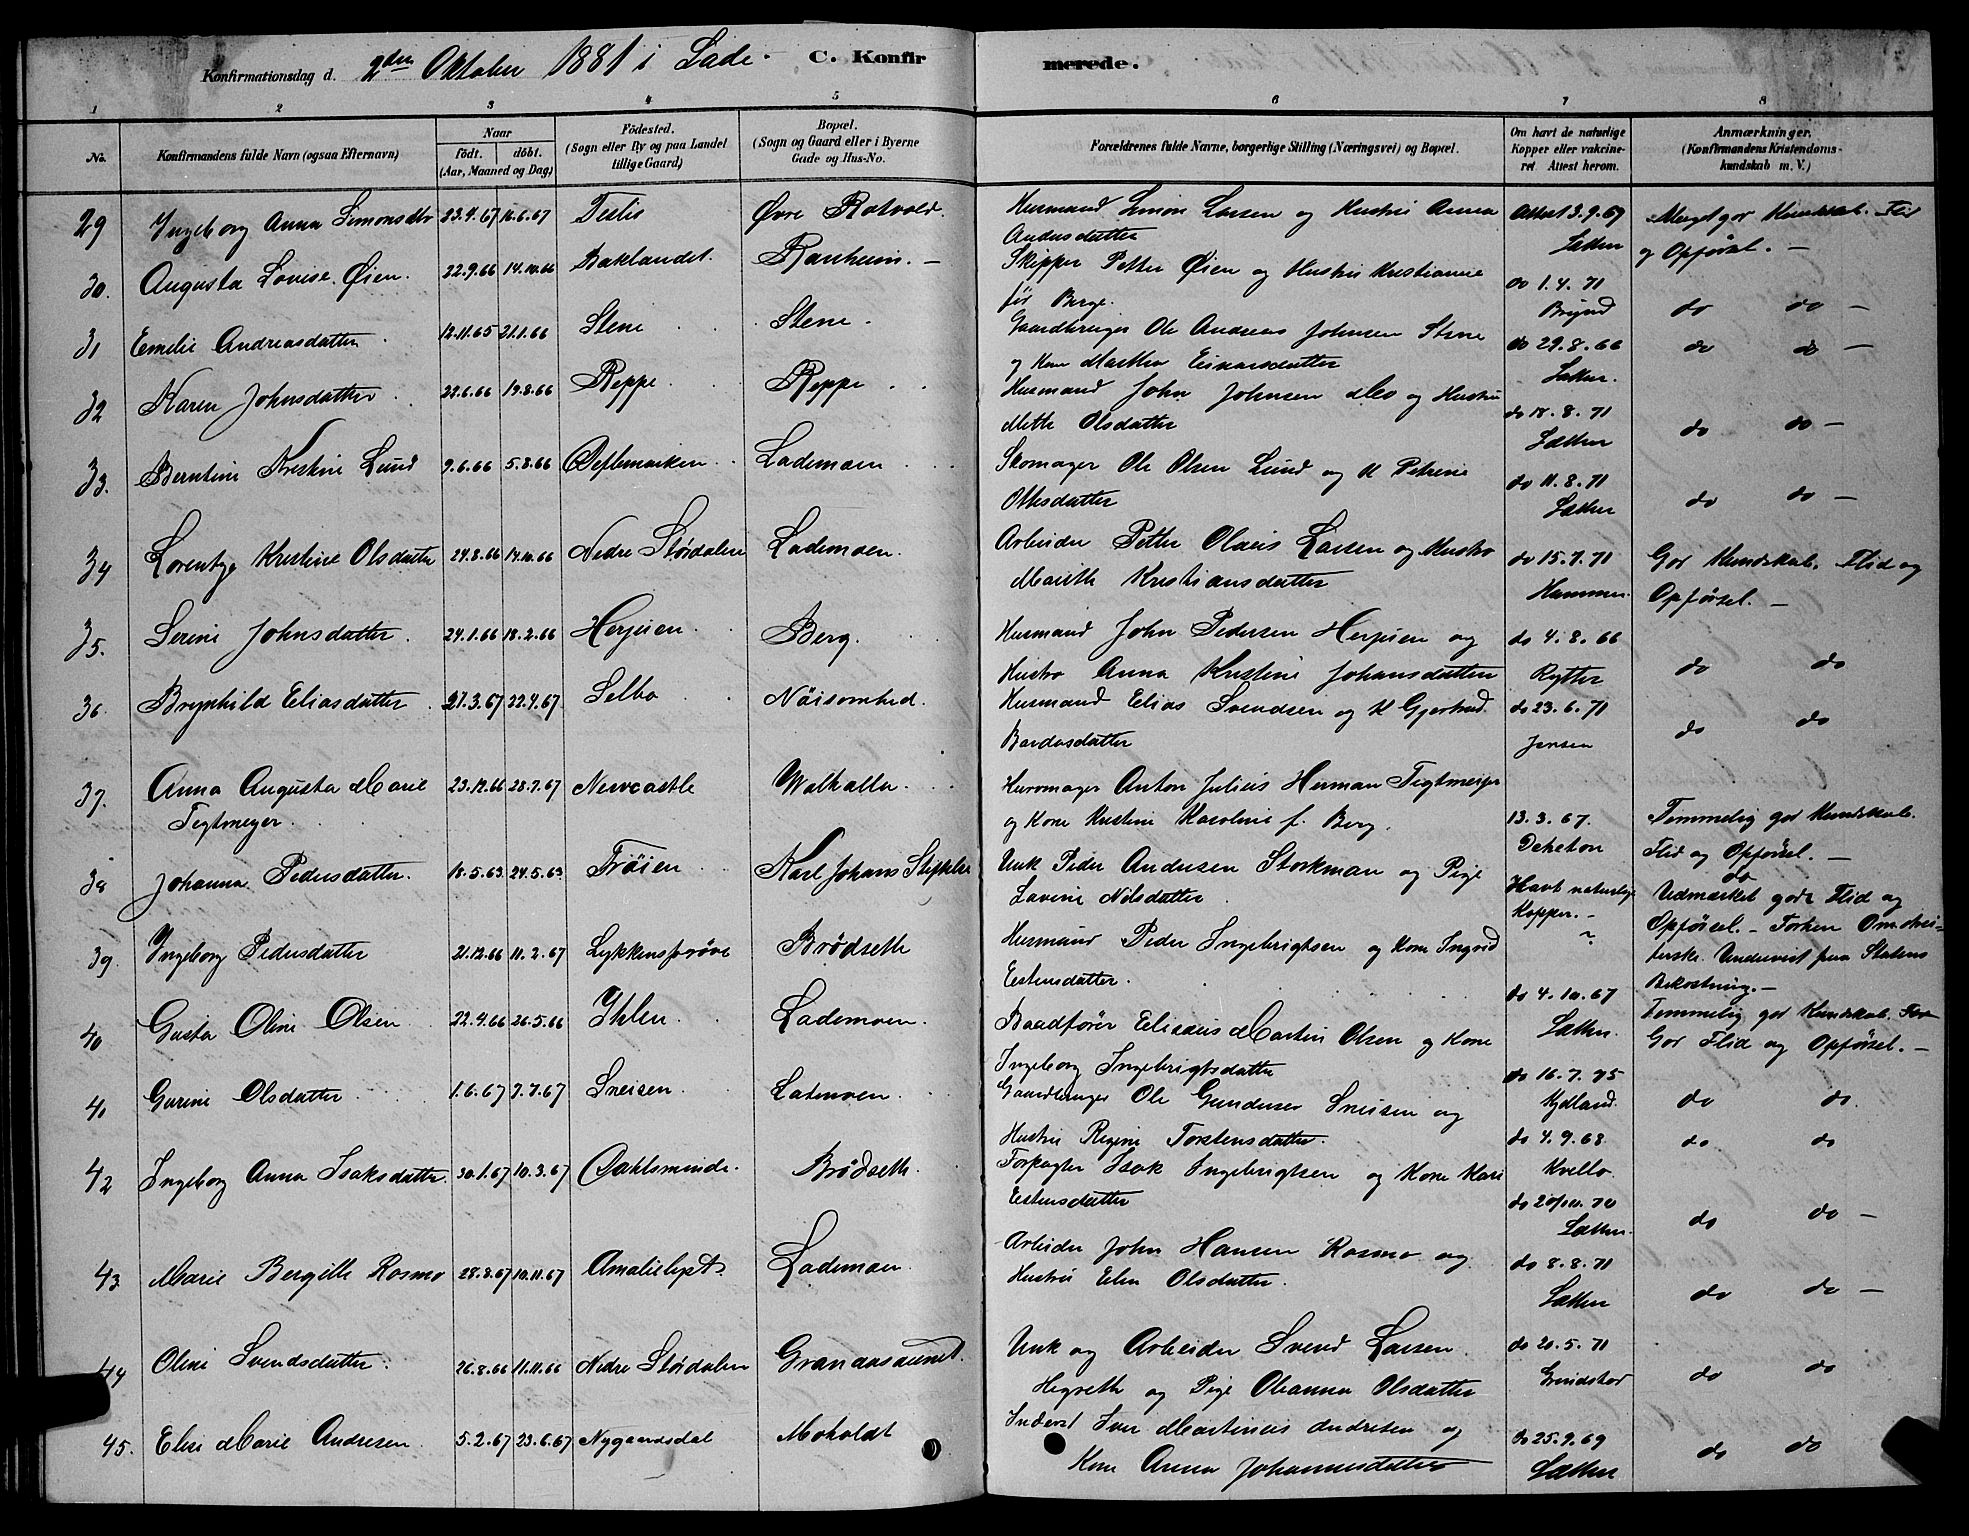 Konfirmationsdag d. 2den Oktober 1881 i Lade. C. Konfirmerede.
1 2 3 4 5 6 7 8
No. Konfirmandens fulde Navn (ogsaa Efternavn) Naar født. døbt. (Aar, Maaned og Dag) Fødested. (Sogn eller By og paa Landet tillige Gaard) Bopæl. (Sogn og Gaard eller i Byerne Gade og Hus-No. Forældrenes fulde Navne, borgerlige Stilling (Næringsvei) og Bopæl. Om havt de naturlige Kopper eller vakcineret Attest herom. Anmærkninger, (Konfirmandens Kristendomskundskab m. V.)
29 Ingeborg Anna Simonsdtr 23.4.67 16.6.67 Teslie Øvre Rotvold. Husmand Simon Larsen og Hustru Anna Attest 3.9.67 Meget god Kundskab. Flid
Andersdatter Sæther og Opførsel. —
30. Augusta Lovise Øien. 22.9.66 14.10.66 Baklandet. Ranheim. — Skipper Petter Øien og Hustru Kristianne do 1.4.71
før Berge. do do —
31 Emelie Andreasdatter 12.11.65 21.1.66 Stene Stene. Gaardbruger Ole Andreas Johnsen Stene do 29.8.66 do do —
og Kone Martha Einarsdatter Sæther.
32 Karen Johnsdatter 22.6.66 19.8.66 Reppe Reppe Husmand John Johnsen Mo og Hustru do 18.8.71 do do —
Mette Olsdatter Sæther
33. Berntine Kristine Lund 9.6.66 5.8.66 Lademoen Skomager Ole Olsen Lund og K Petrine do 11.8.71 do do —
Ottesdatter Sæther
34 Lorentze Kristine Olsdatter 24.8.66 14.10.66 Nedre Stördalen Lademoen. Arbeider Petter Olaus Larsen og Hustru do 15.7.71 God Kundskab. Flid og
Marith Kristiansdatter Hammer. Opførsel. —
35. Serine Johnsdatter 24.1.66 18.2.66 Herjuen Berg. Husmand John Pedersen Herjuen og do 4.8.66 do do
Hustru Anna Kristine Johansdatter Rytter
36. Brynhild Eliasdatter 21.3.67 22.4.67 Selbo Nöisomhed. Husmand Elias Svendsen og K Gjertrud do 23.6.71 do do
Bardosdatter Jensen
37. Anna Augusta Marie 23.12.66 28.7.67 Newcastle Walhalla. Anton Julius Herman Tigtmeyer
Tegtmeyer. og Kone Kristine Karoline f. Berg. 13.3.67. Temmelig god Kundskab.
Flid og Opførsel. —
38 Johanna Pedersdatter. 18.5.63 24.5.63 Trøien Karl Johans Stiftelse Unk Peder Andersen Storkman og Pige Havt naturlige do
Lavine Nilsdatter Kopper. — Udmærket gode Flid og
39. Ingeborg Pedersdatter 21.12.66 11.2.67 Lykkensprøve Brödseth Husmand Peder Ingebrigtsen og Kone Ingrid Opførsel. —
Estensdatter. Undervist paa Statens
do 4.10.67 Bekostning. —
40 Gusta Oline Olsen 22.4.66 26.5.66 Ihlen. Lademoen. Baadfører Elisæus Martin Olsen og Kone Sæther. Temmelig god Kundskab.
Ingeborg Ingebrigtsdatter God Flid og Opførsel. —
41 Gurine Olsdatter 1.6.67 7.7.67 Sneisen. Lademoen. Gaardbruger Ole Gundersen Sneisen og do 16.7.75 do do
Hustru Regine Torstensdatter Kydland.
42 Ingeborg Anna Isaksdatter 30.1.67 10.3.67 Dahlsminde. Brödseth. Forpagter Isak Ingebrigtsen og Kone Kari do 4.9.68 do do
Estensdatter Kvello.
do 20/10.70 do do —
Sæther
43 Marie Bergitte Rosmo 28.8.67 10.11.67 Lademoen. Arbeider John Hansen Rosmo og do 8.8.71 do do —
Hustru Elen Olsdatter. Sæther
44 Oline Svendsdatter 26.8.66 11.11.66 Nedre Stördalen Grandasaunet. Unk og Arbeider Svend Larsen do 20.5.71 do do
Hegseth og Pige Olianna Olsdatter
45. Elise Marie Andresen 5.2.67 23.6.67 Nygaardsdal Moholdt Inderst Iver Martinus Andresen og do 25.9.69 do do
Kone Anna Johannesdatter Sæther